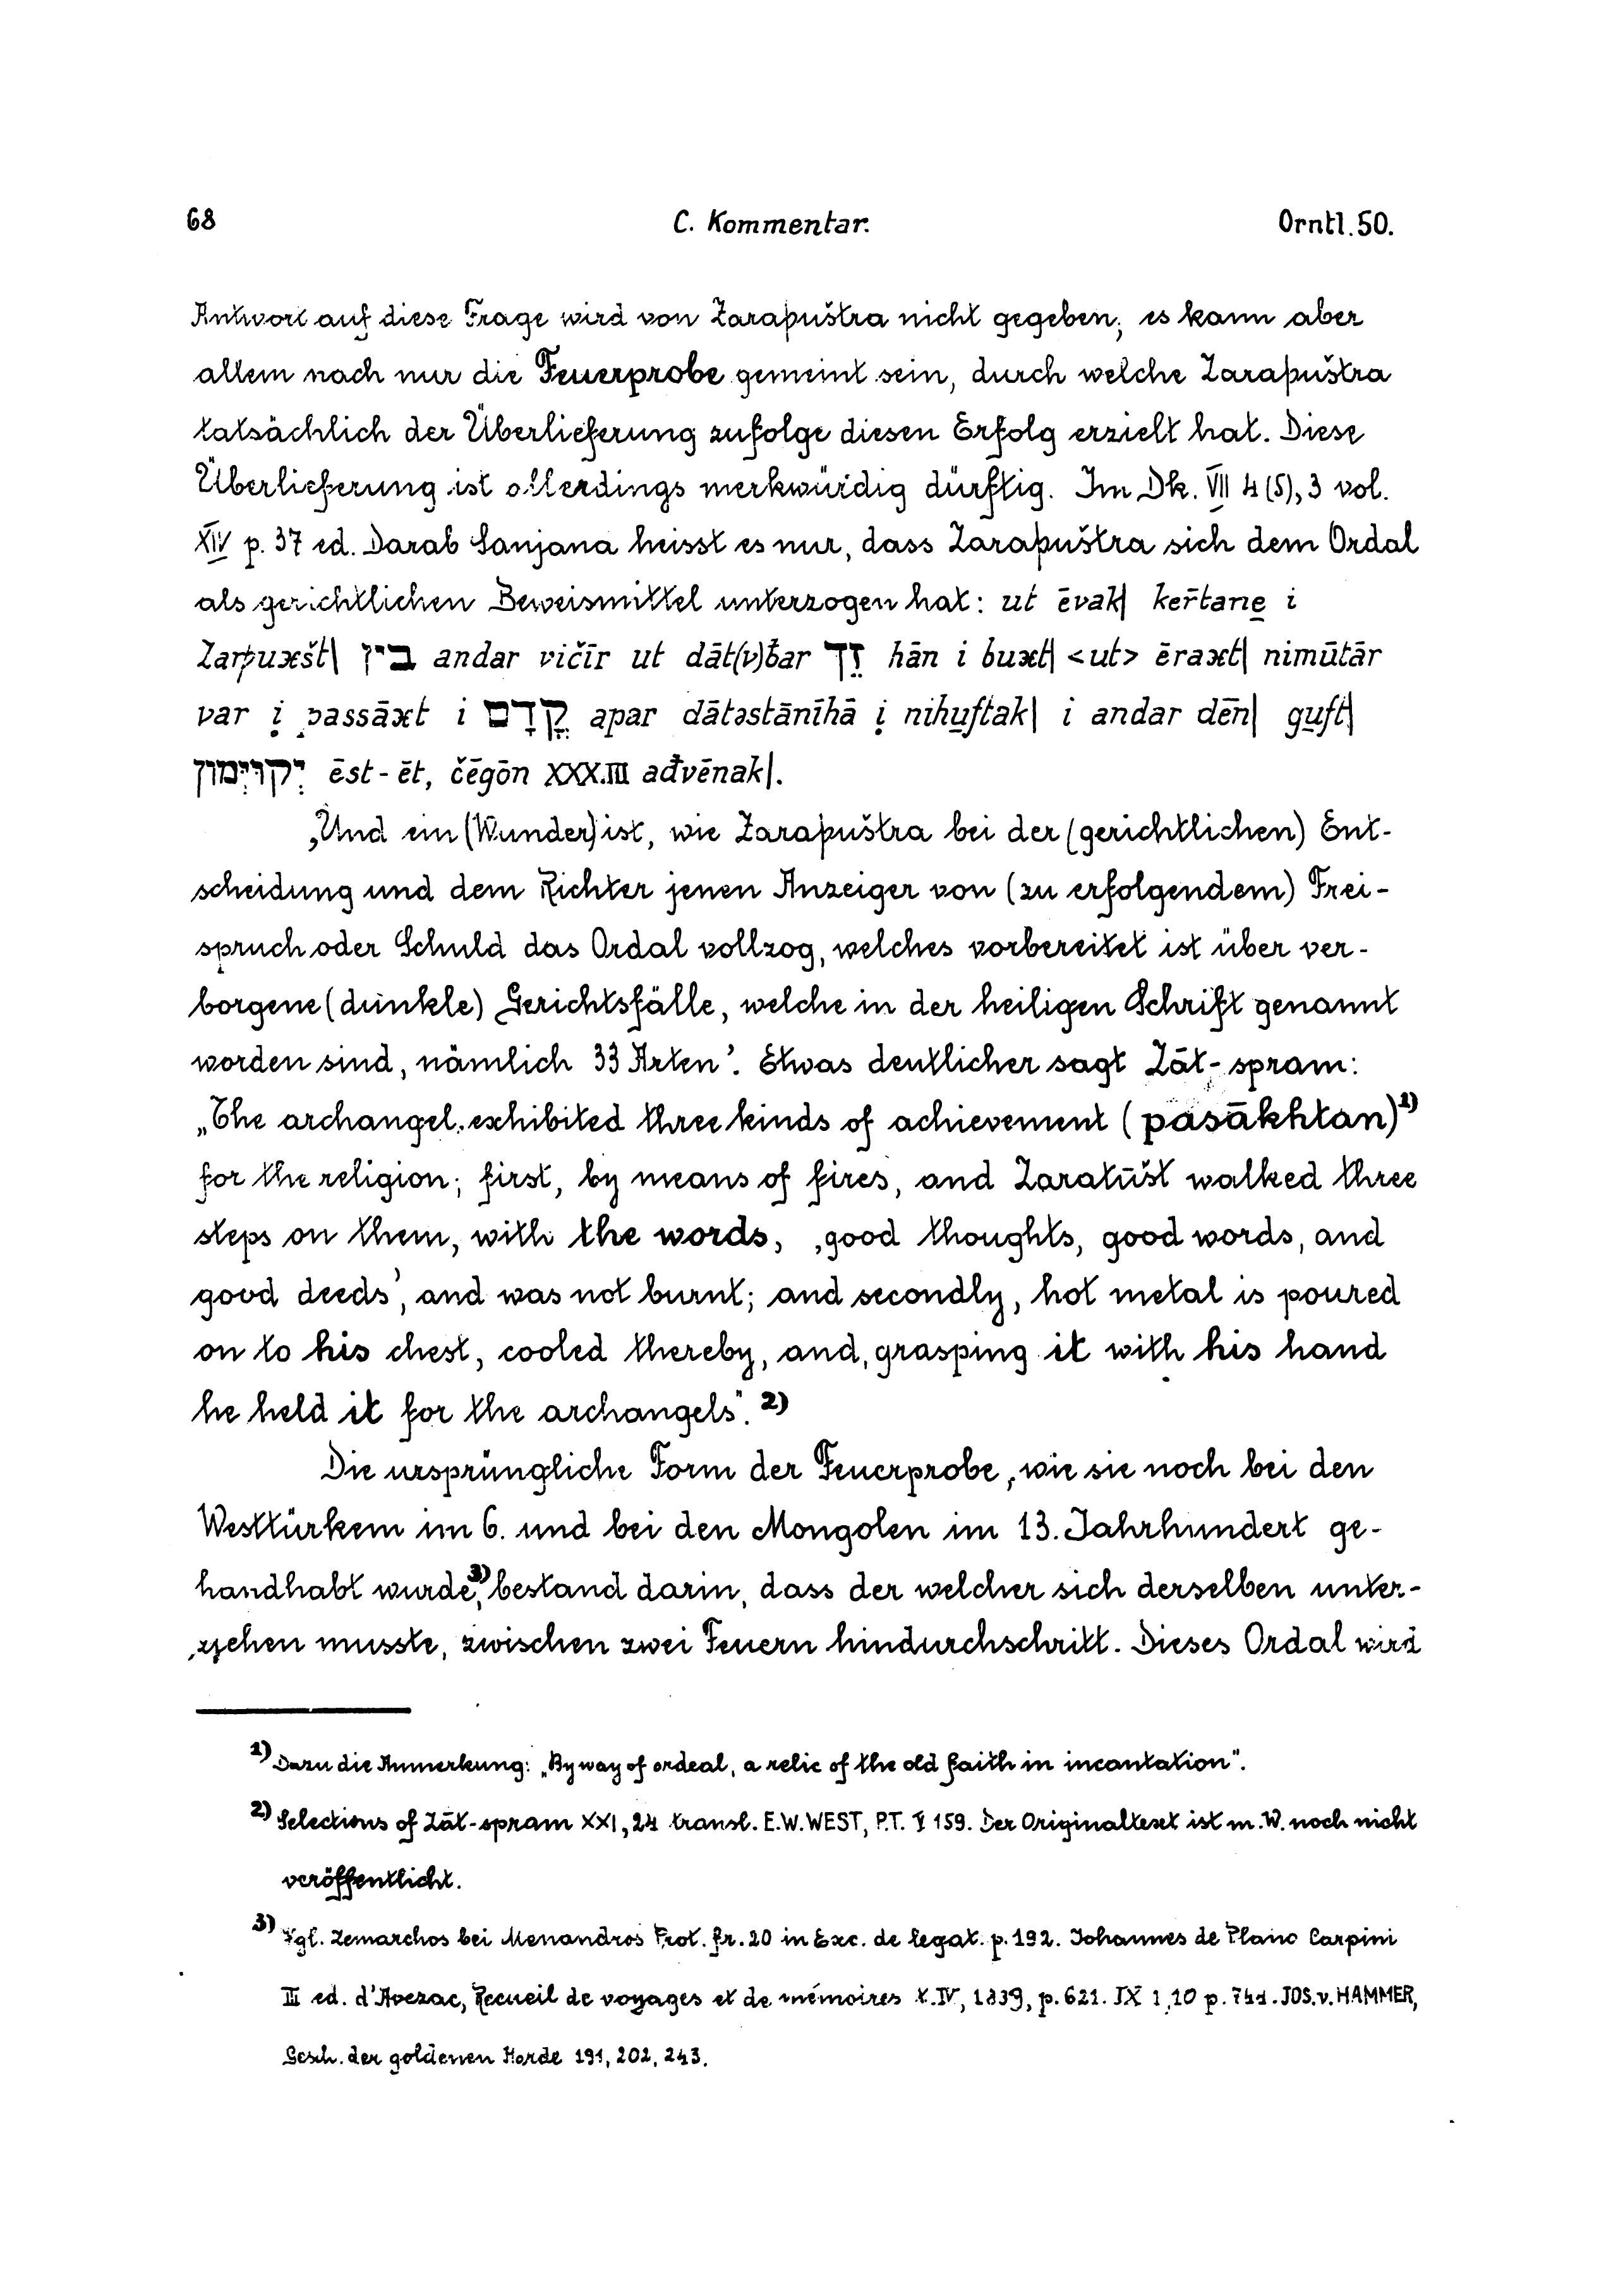 68 C. Kommentar. Orntl. 50.
Antwort auf diese Frage wird von Zaraþuštra nicht gegeben; es kann aber
allem nach nur die Feuerprobe gemeint sein, durch welche Zaraþuštra
tatsächlich der Überlieferung zufolge diesen Erfolg erzielt hat. Diese
Überlieferung ist allerdings merkwürdig dürftig. Im Dk. VII 4 (5), 3 vol.
XIV p. 37 ed. Darab Sanjana heisst es nur, dass Zaraþuštra sich dem Ordal
als gerichtlichen Beweismittel unterzogen hat: ut ēvak| keřtane̱ i
Zarþuxšt| בין andar vičīr ut dāt(v)ƀar זֵךְ hān i buxt| <ut> ēraxt| nimūtār
var i̤ passāxt i קֳדָם apar dātəstānīhā i̤ nihu̱ftak| i andar dēn| gu̱ft|
יְקוֹיְמוּן ēst-ēt, čēgōn XXX.III ađvēnak|.
„Und ein (Wunder) ist, wie Zaraþuštra bei der (gerichtlichen) Ent-
scheidung und dem Richter jenen Anzeiger von (zu erfolgendem) Frei-
spruch oder Schuld das Ordal vollzog, welches vorbereitet ist über ver-
borgene (dunkle) Gerichtsfälle, welche in der heiligen Schrift genannt
worden sind, nämlich 33 Arten'. Etwas deutlicher sagt Zāt-spram:
„The archangel exhibited three kinds of achievement (pasākhtan)1)
for the religion; first, by means of fires, and Zaratūšt walked three
steps on them, with the words, ‚good thoughts, good words, and
good deeds', and was not burnt; and secondly, hot metal is poured
on to his chest, cooled thereby, and, grasping it with his hand
he held it for the archangels". 2)
Die ursprüngliche Form der Feuerprobe, wie sie noch bei den
Westtürken im 6. und bei den Mongolen im 13. Jahrhundert ge-
handhabt wurde,3) bestand darin, dass der welcher sich derselben unter-
ziehen musste, zwischen zwei Feuern hindurchschritt. Dieses Ordal wird
1) Dazu die Anmerkung: „By way of ordeal, a relic of the old faith in incantation".
2) Selections of Zāt-spram XXI, 24 transl. E.W. WEST, P.T. V 159. Der Originaltext ist m. W. noch nicht
veröffentlicht.
3) Vgl. Zemarchos bei Menandros Prot. fr. 20 in Exc. de legat. p. 192. Johannes de Plano Carpini
III ed. d'Avezac, Recueil de voyages et de mémoires t. IV, 1839, p. 621. IX 1,10 p. 744. JOS. v. HAMMER,
Gesch. der goldenen Horde 191, 202, 243.